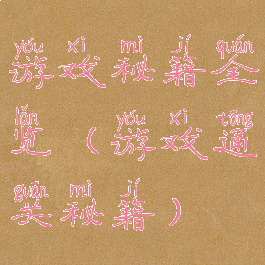 yóu xì mì jí quán
游戏秘籍全
lǎn yóu xì tōng
览（游戏通
guān mì jí
关秘籍）